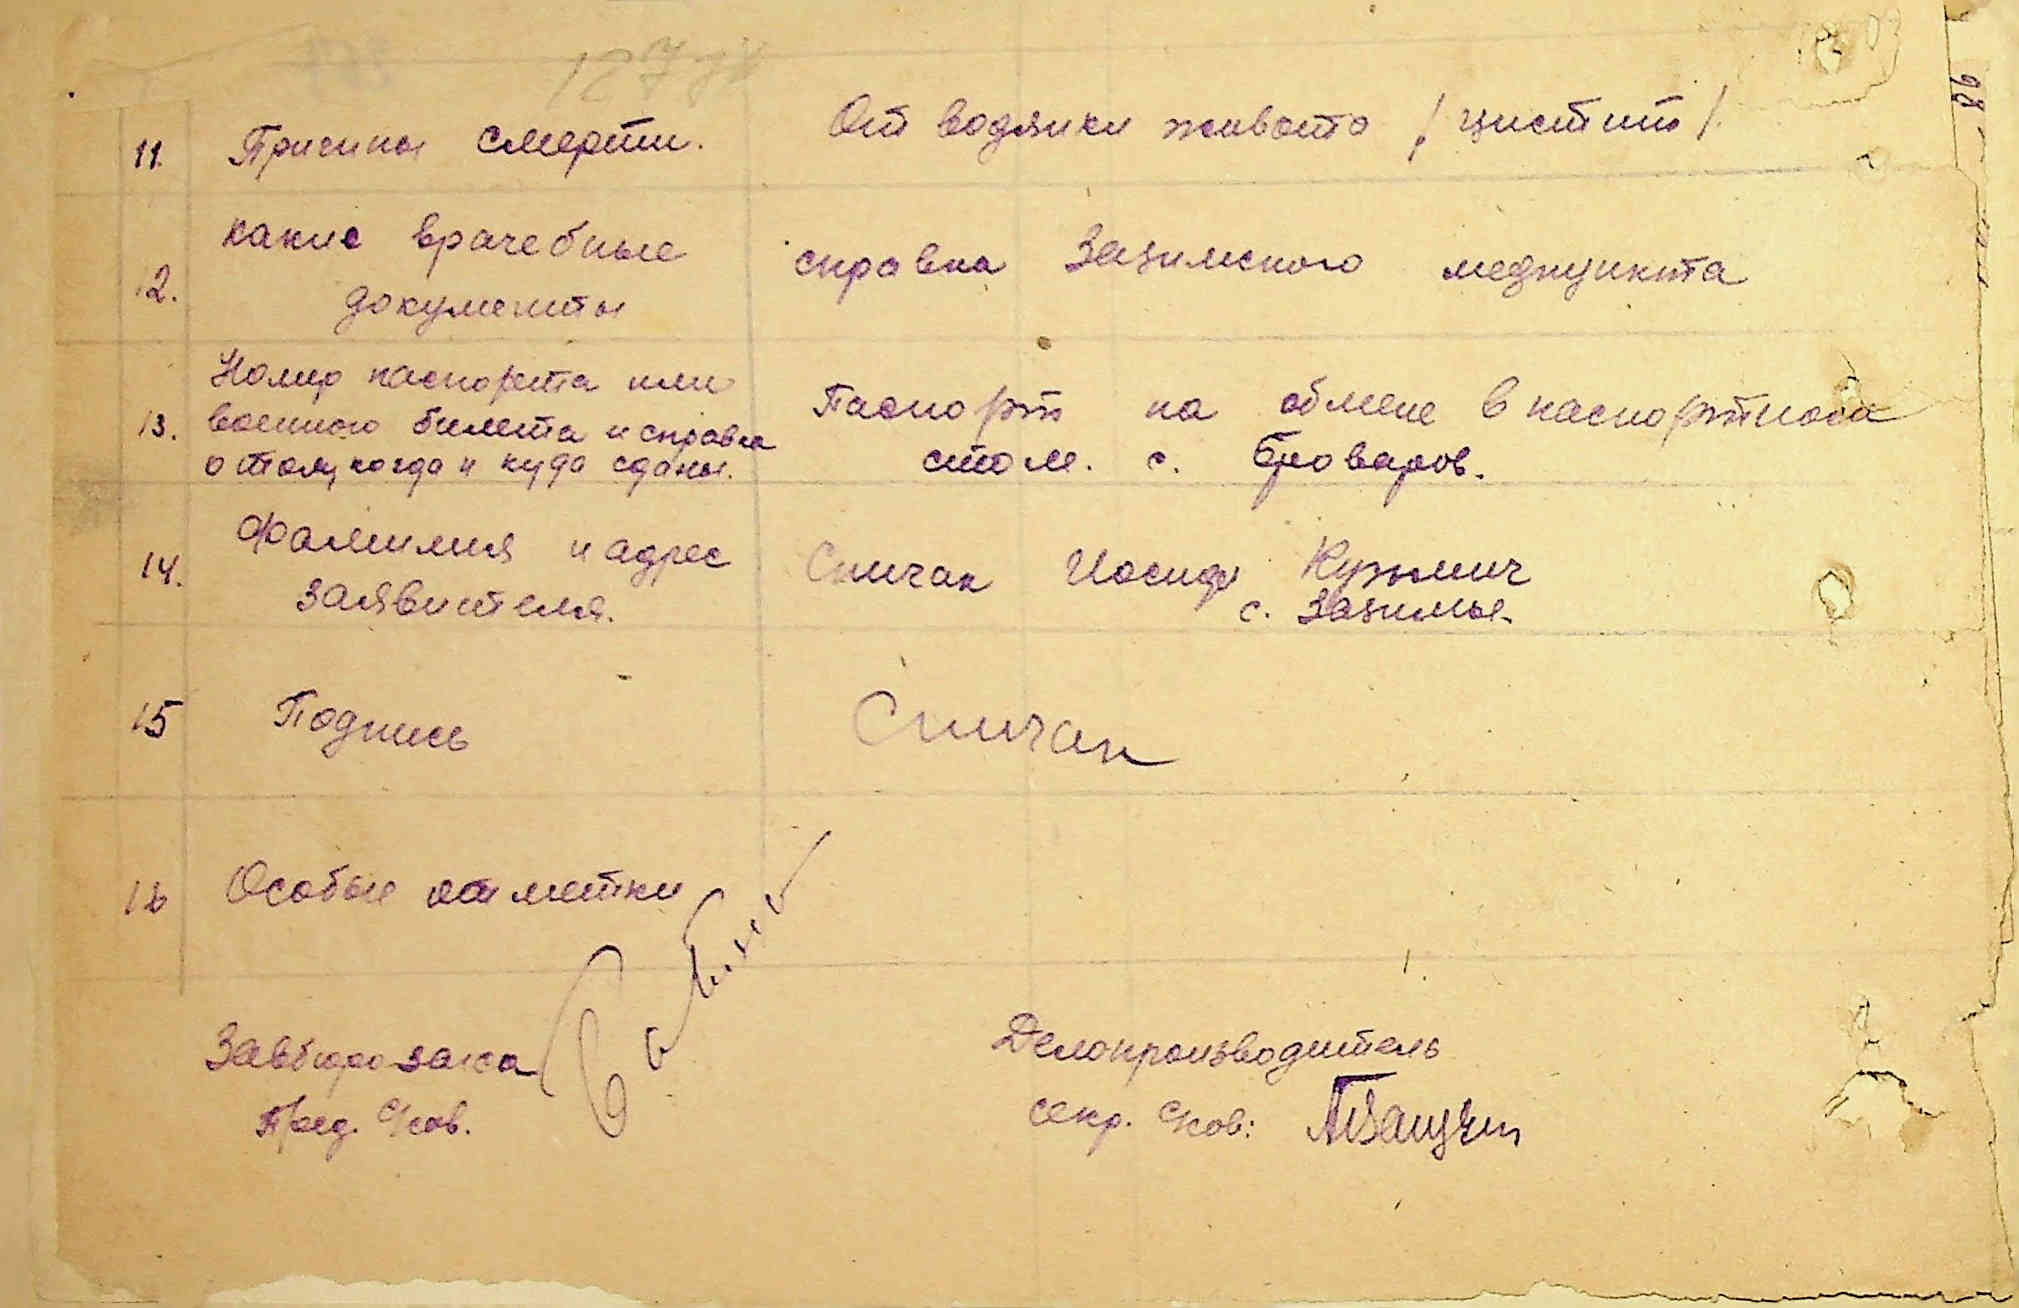 127
98
11. Причины смерти. От водянки живота / цистит /.
какие врачебные справка Зазимского медпункта
12. документы
Номер паспорта или
13. военного билета и справка Паспорт на обмене в паспортном
о том, когда и куда сданы. столе. с. Броваров.
14. Фамилия и адрес Спичак Иосиф Кузьмич
заявителя. с. Зазимье.
15 Подпись Спичак
16 Особые отметки
Завбюро загса Делопроизводитель
Пред. с/сов. секр. с/сов: